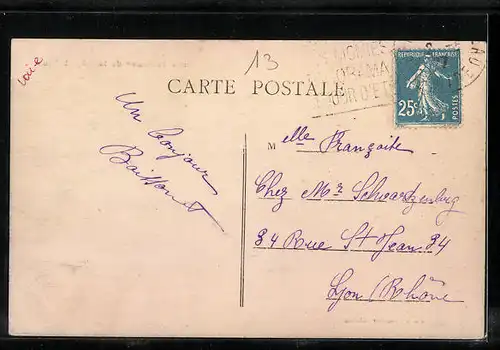 voie
13
CARTE POSTALE
REPUBLIQUE FRANÇAISE
25c
POSTES
Un bonjour
Boissonnet
M elle Françoise
Chez Mr Schwartzenberg
34 Rue St Jean 34
Lyon (Rhône)